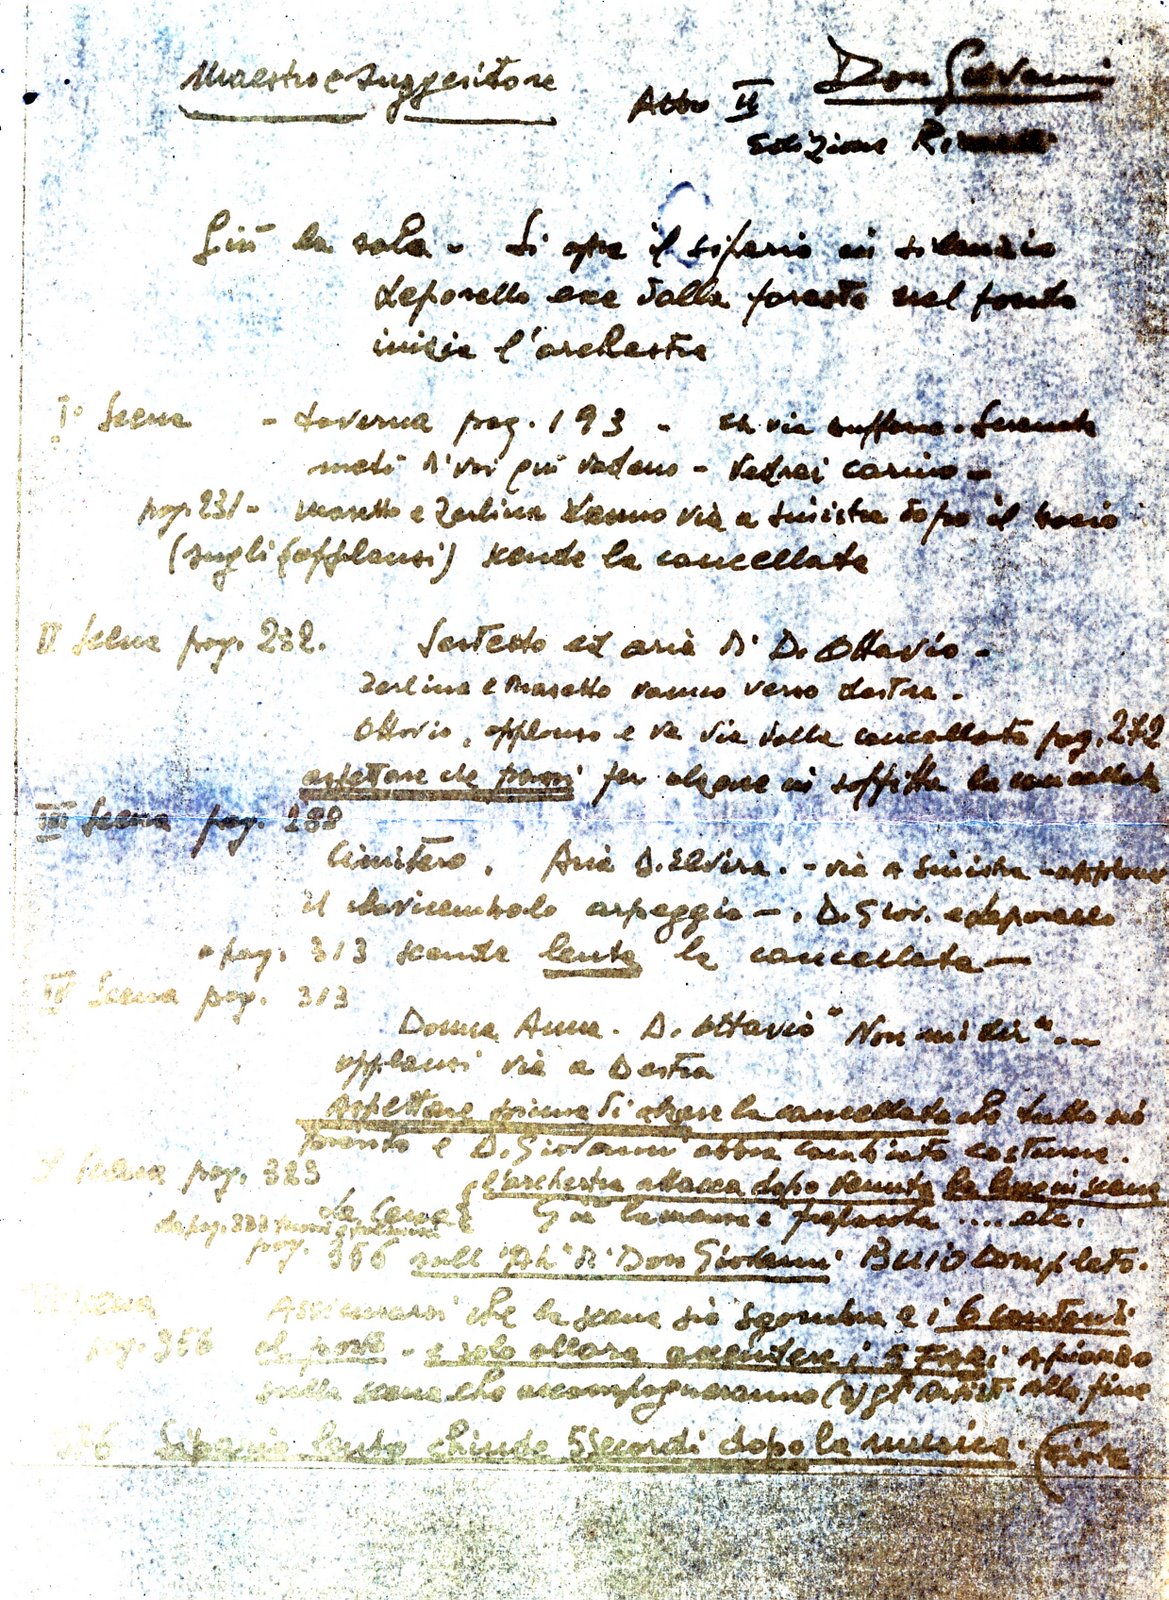 Maestro e Suggeritore
Atto II Don Giovanni
Edizione
Giù la sala - Si apre il sipario in silenzio
Leporello esce dalla foresta nel fondo
inizia l'orchestra
I° Scena - taverna pag. 193 - Eh via buffone - Serenata
metà di voi quà vadano - Vedrai carino -
pag. 231 - Masetto e Zerlina vanno via a sinistra dopo il bacio
(sugli applausi) scende la cancellata
II Scena pag. 232. Sestetto ed aria di D. Ottavio -
Zerlina e Masetto vanno verso destra -
Ottavio, applauso e va via dalla cancellata pag. 272
aspettare che passi per alzare in soffitta la cancellata
III Scena pag. 288
Cimitero. Aria D. Elvira. - via a sinistra - applausi
il clavicembalo arpeggia - . D. Giov. e Leporello
a pag. 313 scende lenta la cancellata
IV Scena pag. 313
Donna Anna. D. Ottavio "Non mi dir" ...
applausi via a Destra
Aspettare prima di alzare la cancellata che tutto sia
pronto e D. Giovanni abbia cambiato costume.
V Scena pag. 323 l'orchestra attacca dopo venuta la luce in scena
La Cena Già la mensa è preparata .... etc.
pag. 356 sull' "Ah" di Don Giovanni Buio completo.
Scena Assicurarsi che la scena sia sgombra e i 6 cantanti
pag. 356 al posto - e solo allora accendere i 5 Fari a piombo
sulla scena che accompagneranno gli artisti alla fine
Sipario lento chiude 5 secondi dopo la musica. Fine